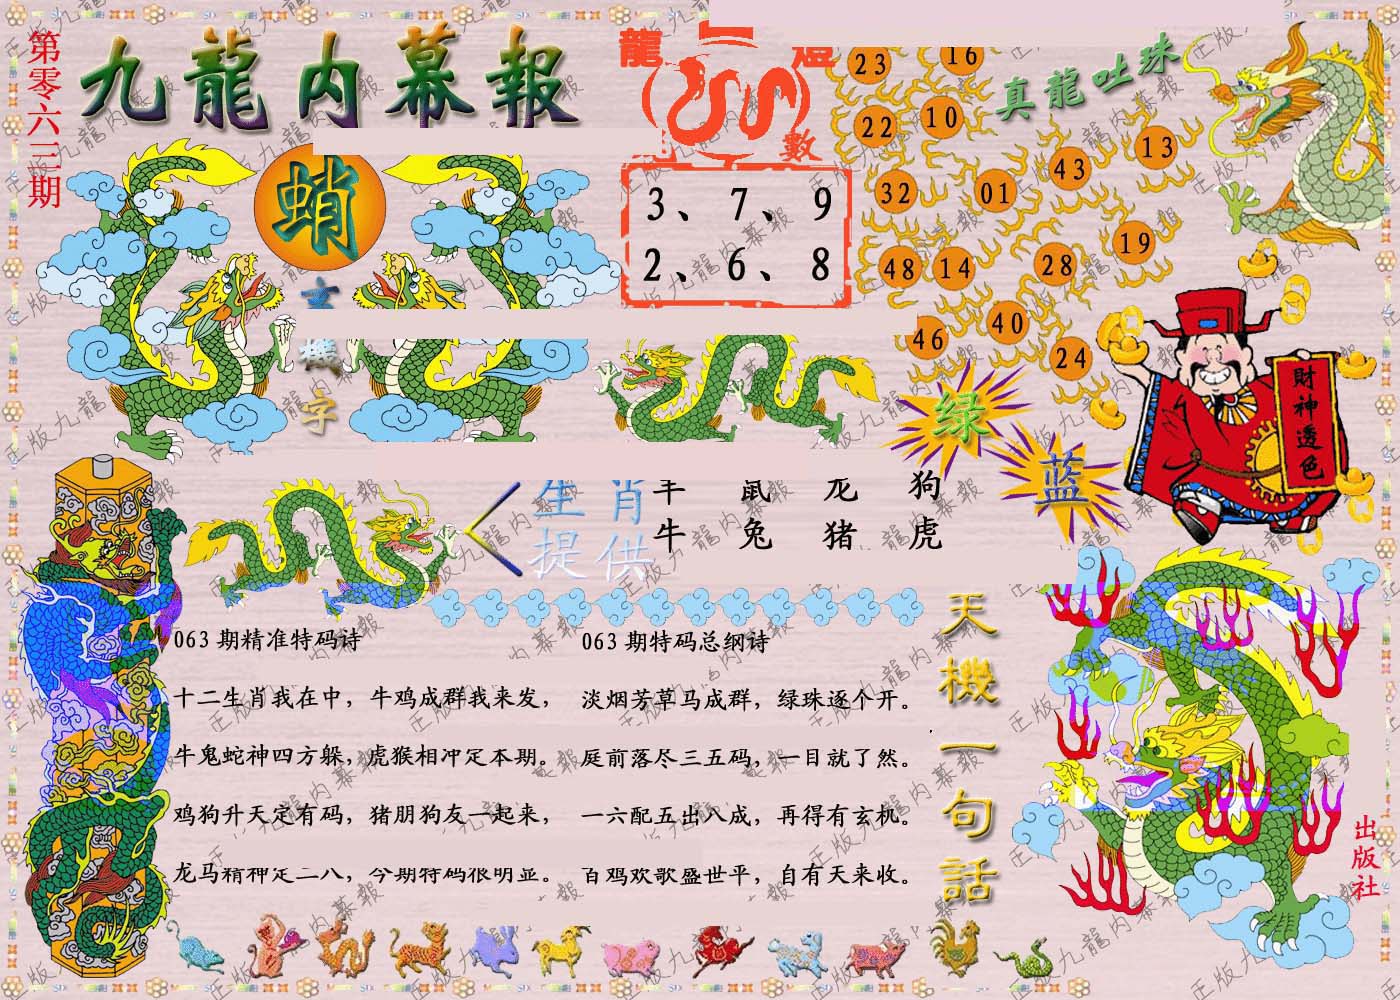 第零六三期
九龍内幕報
龍
數
真龍吐珠
蛸
字
3、7、9
2、6、8
23
16
22
10
13
43
32
01
19
48
14
28
40
46
24
財神透色
绿
蓝
生肖
提供
羊 鼠 龙 狗
牛 兔 猪 虎
063期精准特码诗
十二生肖我在中，牛鸡成群我来发，
牛鬼蛇神四方躲，虎猴相冲定本期。
鸡狗升天定有码，猪朋狗友一起来，
龙马精神定二八，今期特码很明显。
063期特码总纲诗
淡烟芳草马成群，绿珠逐个开。
庭前落尽三五码，一目就了然。
一六配五出八成，再得有玄机。
百鸡欢歌盛世平，自有天来收。
天機一句話
出版社
正版九龍内幕報